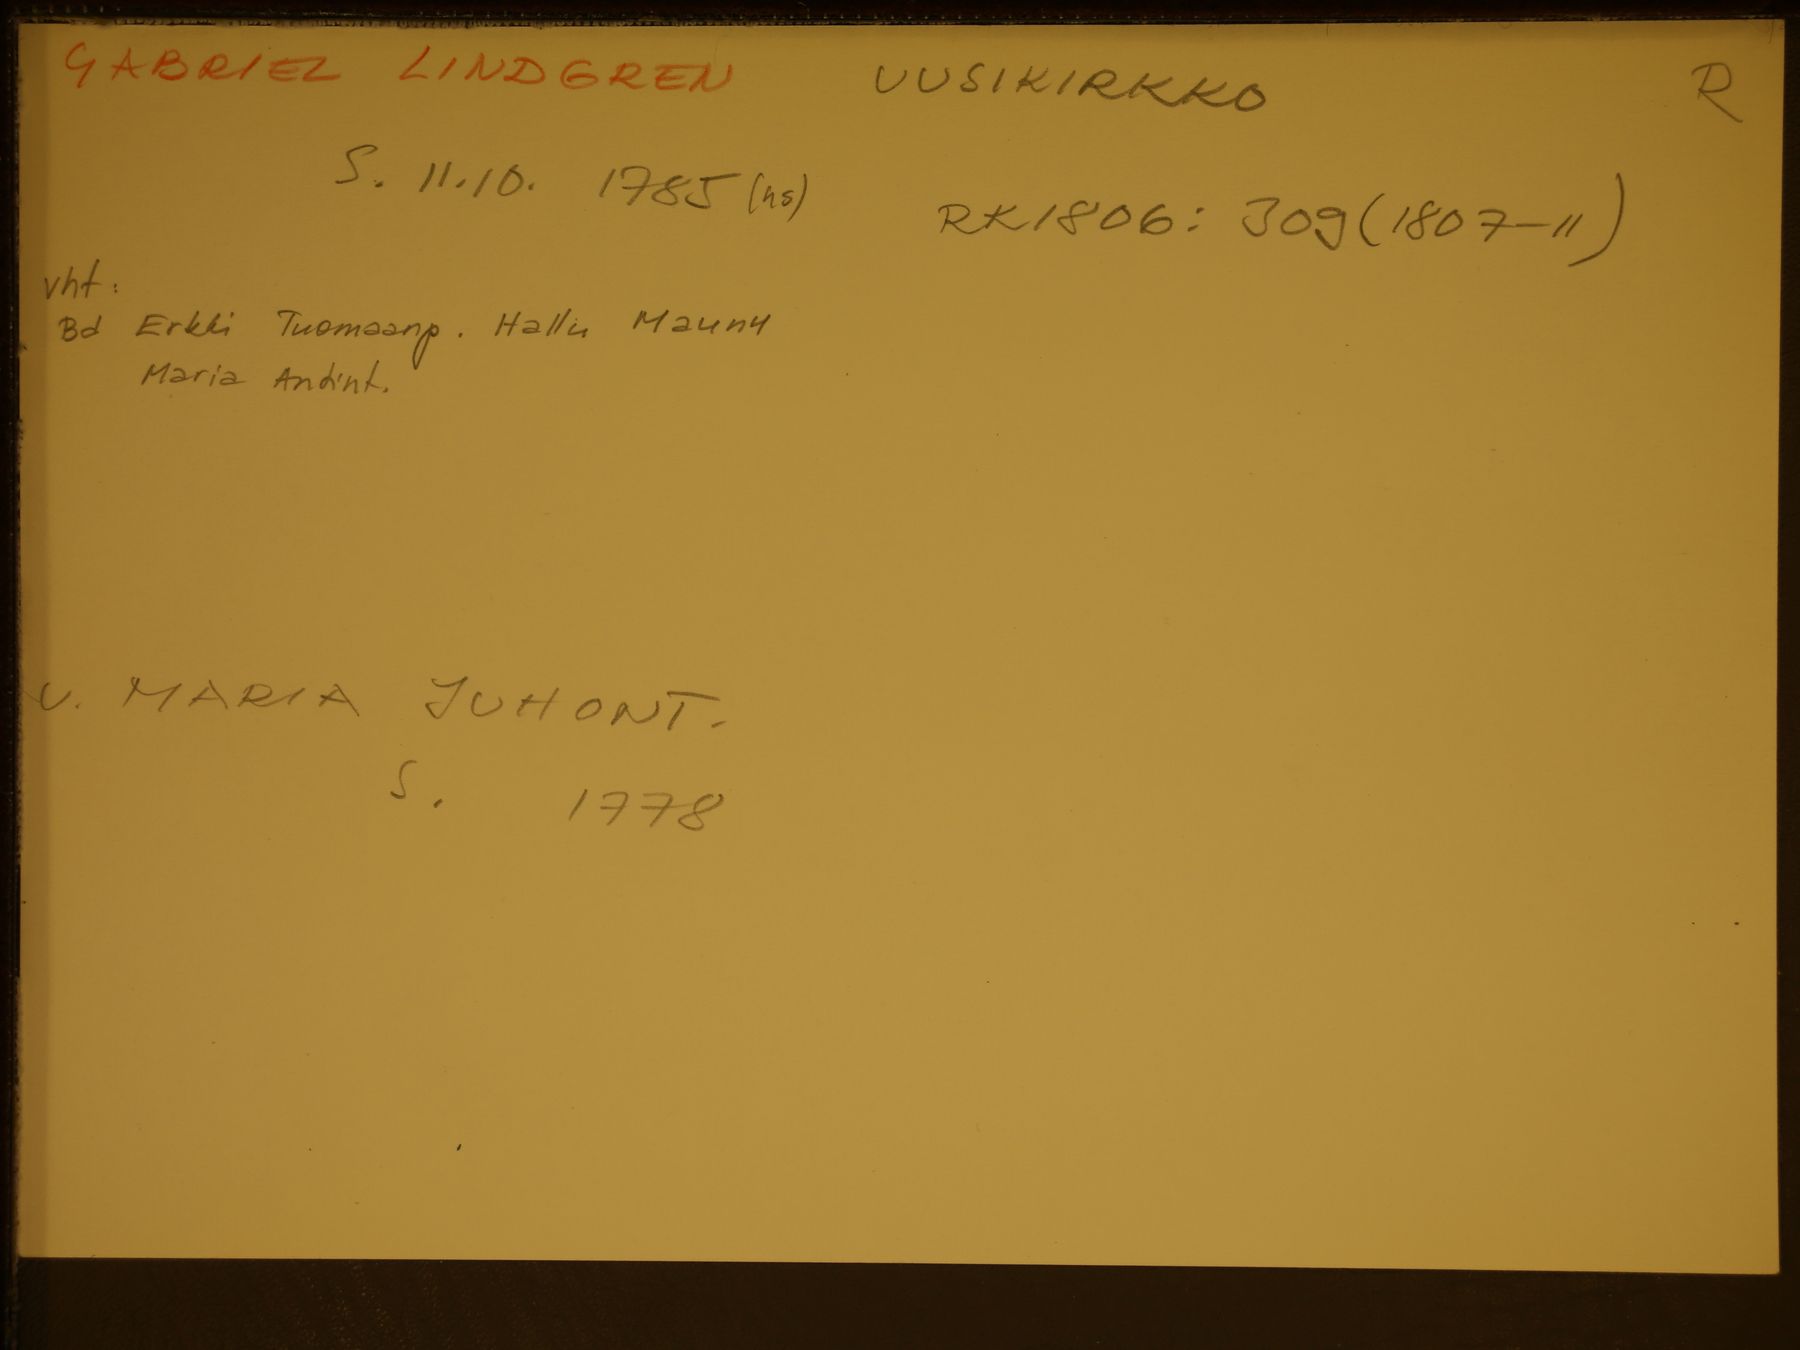 GABRIEL LINDGREN UUSIKIRKKO R
S. 11.10. 1785 (hs)
RK1806: 309 (1807-11)
vht:
Bd Erkki Tuomaanp. Hallu Maunu
Maria Antint.
V. MARIA JUHONT.
S. 1778